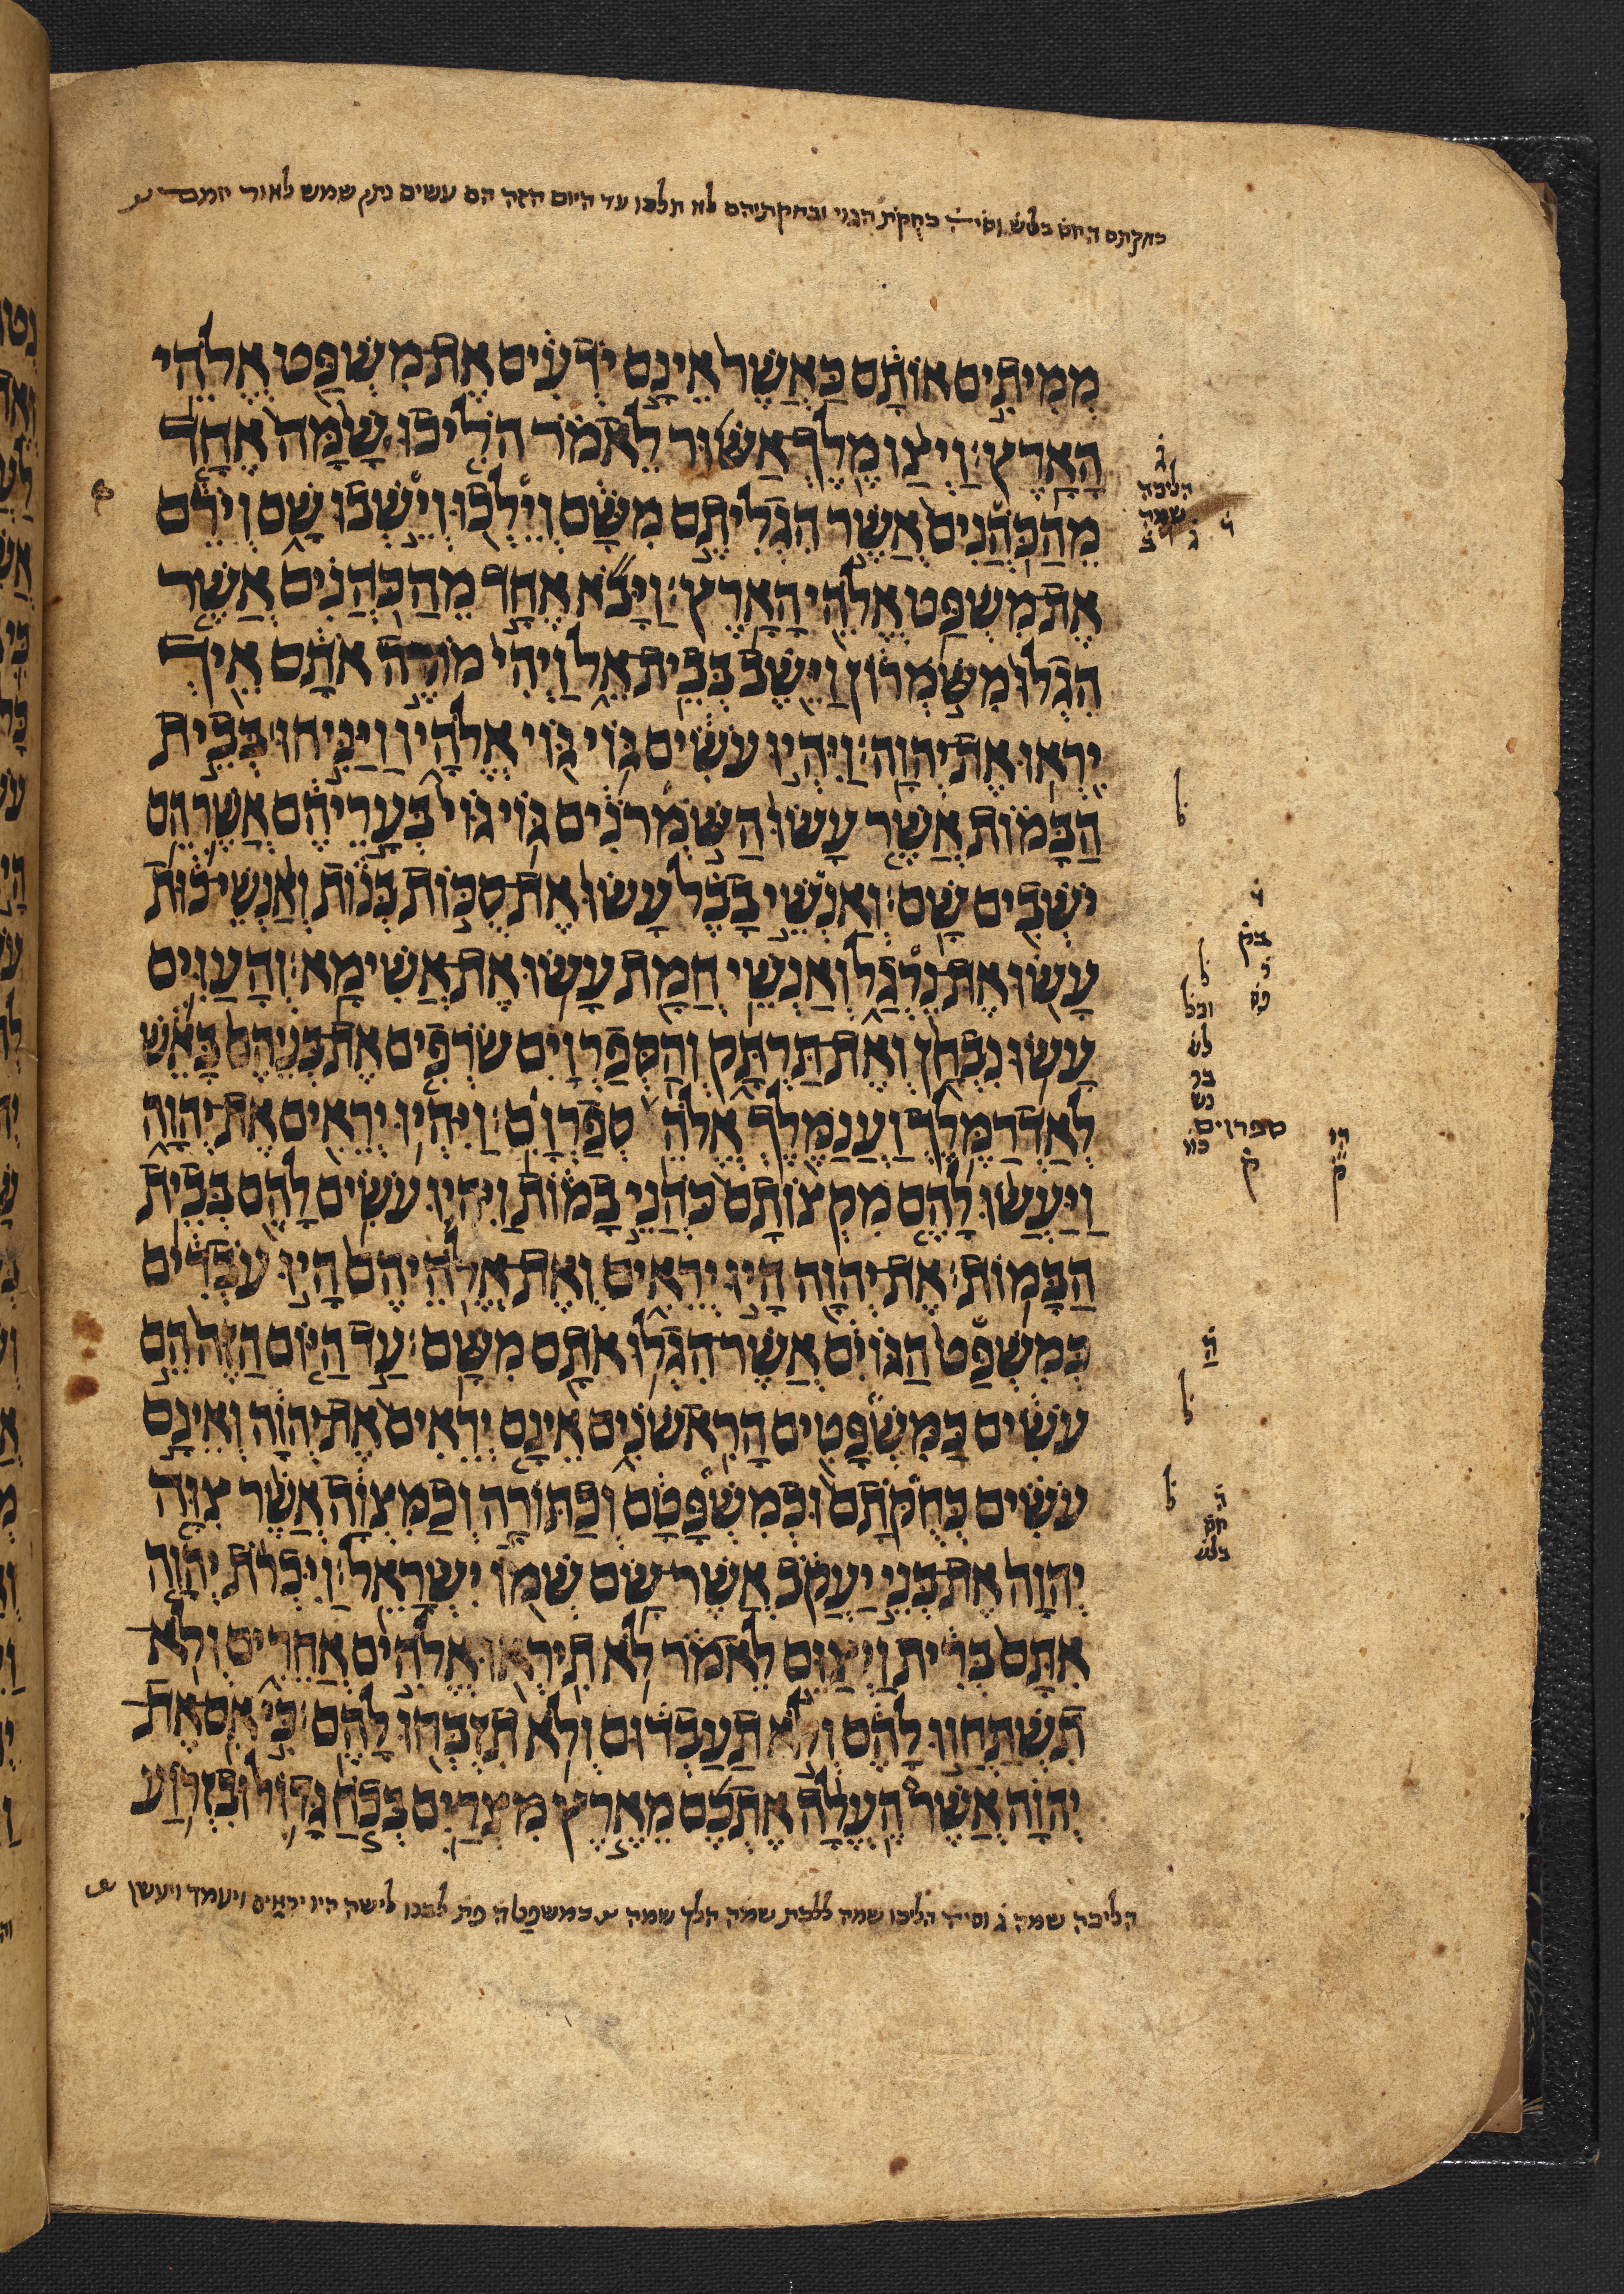 בחקתם
הגוי ובחקתיהם לא תלכו עד היום הזה הם עשים נתן שמש לאור יומם
מְמִיתִים אוֹתָם כַּאֲשֶׁר אֵינָם יֹדְעִים אֶת מִשְׁפַּט אֱלֹהֵי
הָאָרֶץ׃ וַיְצַו מֶלֶךְ אַשּׁוּר לֵאמֹר הֹלִיכוּ שָׁמָּה אֶחָד
מֵהַכֹּהֲנִים אֲשֶׁר הִגְלִיתֶם מִשָּׁם וְיֵלְכוּ וְיֵשְׁבוּ שָׁם וְיֹרֵם
אֶת מִשְׁפַּט אֱלֹהֵי הָאָרֶץ׃ וַיָּבֹא אֶחָד מֵהַכֹּהֲנִים אֲשֶׁר
הִגְלוּ מִשֹּׁמְרוֹן וַיֵּשֶׁב בְּבֵית אֵל וַיְהִי מוֹרֶה אֹתָם אֵיךְ
יִרְאוּ אֶת יְהוָה׃ וַיִּהְיוּ עֹשִׂים גּוֹי גּוֹי אֱלֹהָיו וַיַּנִּיחוּ בְּבֵית
הַבָּמוֹת אֲשֶׁר עָשׂוּ הַשֹּׁמְרֹנִים גּוֹי גּוֹי בְּעָרֵיהֶם אֲשֶׁר הֵם
יֹשְׁבִים שָׁם׃ וְאַנְשֵׁי בָבֶל עָשׂוּ אֶת סֻכּוֹת בְּנוֹת וְאַנְשֵׁי כוּת
עָשׂוּ אֶת נֵרְגַל וְאַנְשֵׁי חֲמָת עָשׂוּ אֶת אֲשִׁימָא׃ וְהָעַוִּים
עָשׂוּ נִבְחַן וְאֶת תַּרְתָּק וְהַסְפַרְוִים שֹׂרְפִים אֶת בְּנֵיהֶם בָּאֵשׁ
לְאַדְרַמֶּלֶךְ וַעֲנַמֶּלֶךְ אֱלֹהֵ סְפַרְוִם׃ וַיִּהְיוּ יְרֵאִים אֶת יְהוָה
וַיַּעֲשׂוּ לָהֶם מִקְצוֹתָם כֹּהֲנֵי בָמוֹת וַיִּהְיוּ עֹשִׂים לָהֶם בְּבֵית
הַבָּמוֹת׃ אֶת יְהוָה הָיוּ יְרֵאִים וְאֶת אֱלֹהֵיהֶם הָיוּ עֹבְדִים
כְּמִשְׁפַּט הַגּוֹיִם אֲשֶׁר הִגְלוּ אֹתָם מִשָּׁם׃ עַד הַיּוֹם הַזֶּה הֵם
עֹשִׂים כַּמִּשְׁפָּטִים הָרִאשֹׁנִים אֵינָם יְרֵאִים אֶת יְהוָה וְאֵינָם
עֹשִׂים כְּחֻקֹּתָם וּכְמִשְׁפָּטָם וְכַתּוֹרָה וְכַמִּצְוָה אֲשֶׁר צִוָּה
יְהוָה אֶת בְּנֵי יַעֲקֹב אֲשֶׁר שָׂם שְׁמוֹ יִשְׂרָאֵל׃ וַיִּכְרֹת יְהוָה
אִתָּם בְּרִית וַיְצַוֵּם לֵאמֹר לֹא תִירְאוּ אֱלֹהִים אֲחֵרִים וְלֹא
תִשְׁתַּחֲווּ לָהֶם וְלֹא תַעַבְדוּם וְלֹא תִזְבְּחוּ לָהֶם׃ כִּי אִם אֶת
יְהוָה אֲשֶׁר הֶעֱלָה אֶתְכֶם מֵאֶרֶץ מִצְרַיִם בְּכֹחַ גָּדוֹל וּבִזְרוֹעַ
ג
הליכה
שמה
ל
ל
וכל
ספרוים
ק
ל
ל
הליכה שמה ג וסיה הליכו שמה ללכת שמה הלך שמה
לישה היו יראים ויעמד ויעשן